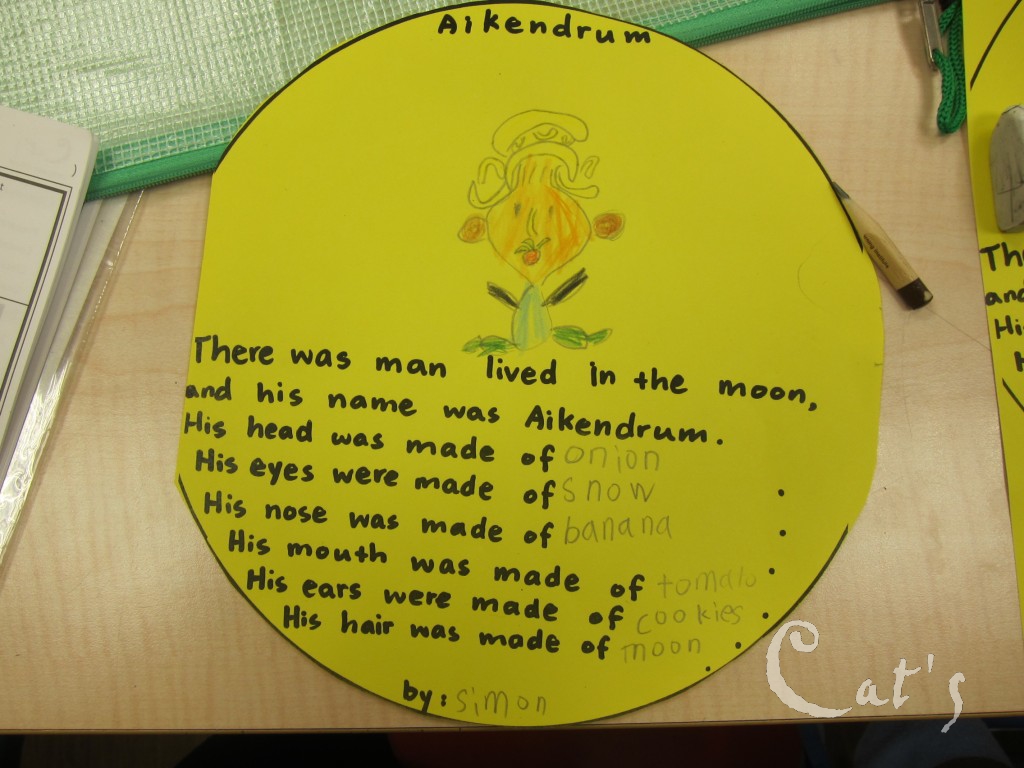 Aikendrum
There was man lived in the moon,
and his name was Aikendrum.
His head was made of onion
His eyes were made of snow.
His nose was made of banana.
His mouth was made of tomato.
His ears were made of cookies.
His hair was made of moon.
by: simon
The
and
Hi
Cat's